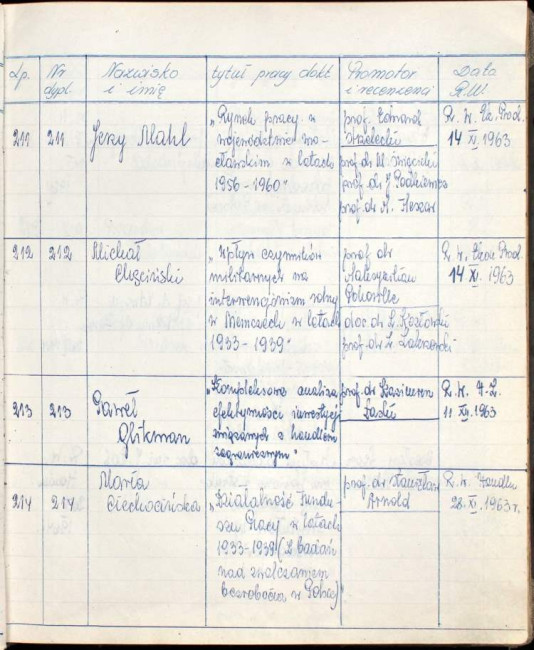 Lp. Nr dypl. Nazwisko i imię tytuł pracy dokt. Promotor i recenzenci Data R.W.
211 211 Jerzy Mahl
„Rynek pracy w
województwie wro-
cławskim w latach
1956-1960"
prof. Edward
Strzelecki
prof. dr W.
prof. dr J.
prof. dr A.
R. W. Ek. Prod.
14 XI. 1963
212 212 Michał
Chęciński
„Wpływ czynników
militarnych na
interwencjonizm rolny
w Niemczech w latach
1933-1939"
prof dr
Maksymilian
Pohorille
doc. dr Z. Kozłowski
prof. dr
R. W. Ekon Prod.
14 XI. 1963
213 213 Paweł
Glikman
„Kompleksowa analiza
efektywności inwestycji
związanych z handlem
zagranicznym"
prof. dr Kazimierz
Łaski
R. W.
11 XII. 1963
214 214 Maria
Ciechocińska
„Działalność Fundu-
szu Pracy w latach
1933-1939 (Z badań
nad zwalczaniem
bezrobocia w Polsce)"
prof. dr Stanisław
Arnold
R. W. Handlu
28. XI. 1963 r.